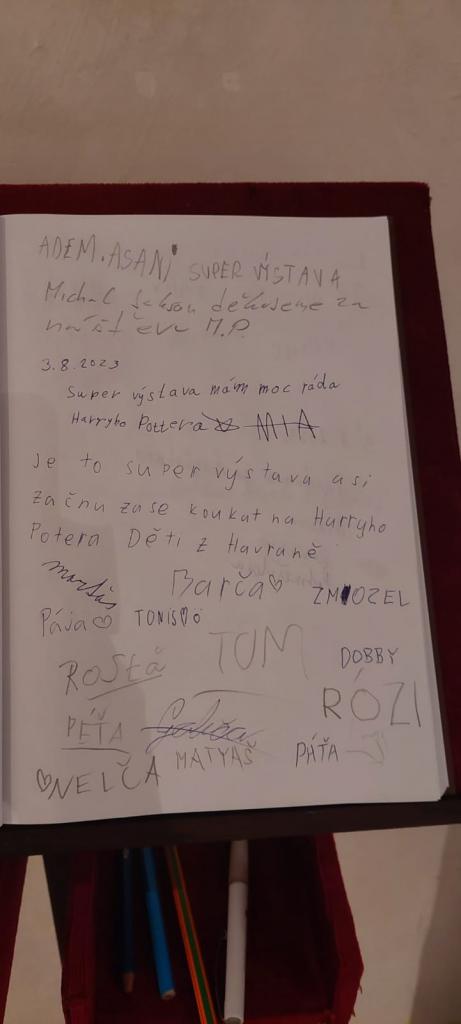 ADEM.ASANI SUPER VÍSTAVA
Michal Jekson děkujeme za
návštěvu M.P.
3.8.2023
Super výstava mám moc ráda
Harryho Pottera MIA
Je to super výstava asi
začnu zase koukat na Harryho
Potera Děti z Havraně
Barča ZMIOZEL
Pája TONIS
TOM DOBBY
ROSťA RÓZI
PÉŤA
MATYAŠ PÁŤA
NELČA